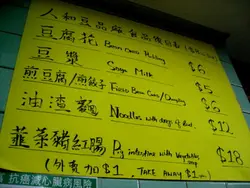 人和豆品廠食品價目表
豆腐花 Bean Curd Pudding $6
豆漿 Soya Milk $5
煎豆腐/煎餃子 Fried Bean Curd/Dumpling $6
油渣麵 Noodles with deep fried $12
韮菜豬紅腸 Pig intestine with Vegetables $18
(外賣加$1. TAKE AWAY $1.)
抗癌減心臟病風險